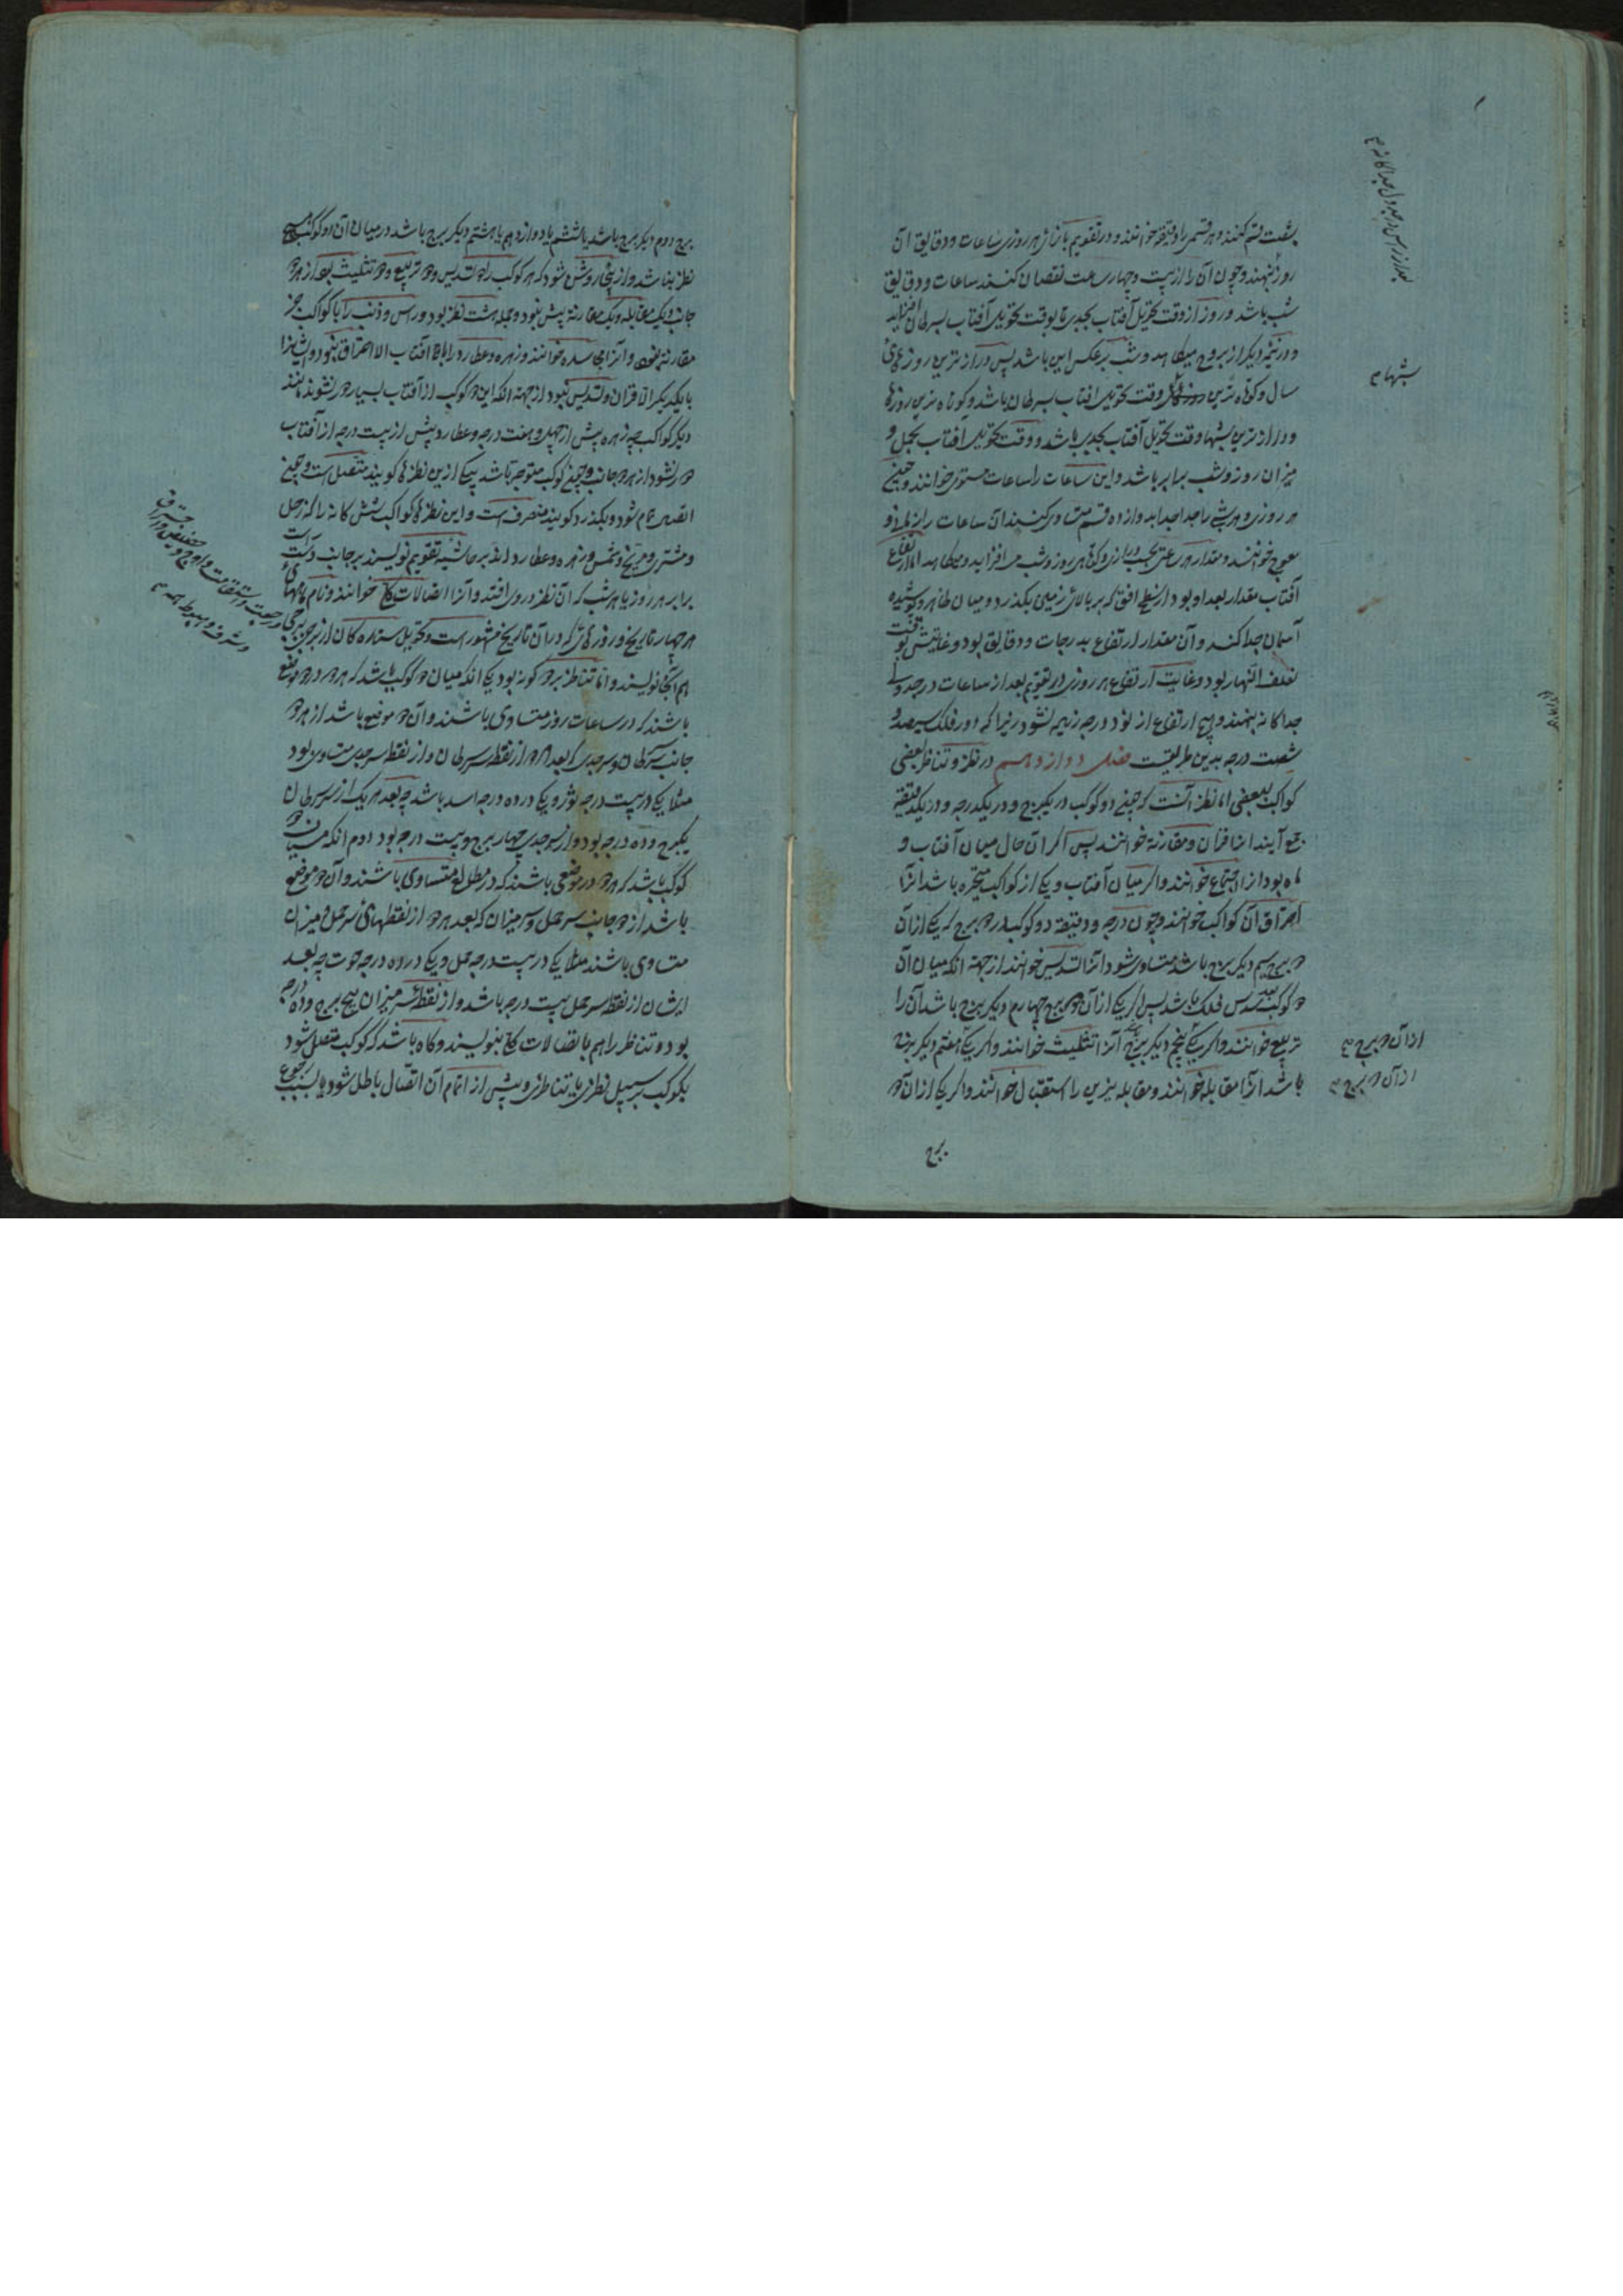 بشصت قسم کنند و هر قسمی را دقیقه خوانند و در تقویم بازاء هر روزی ساعات و دقایق آن
روز بنهند و چون آن را از بیست و چهار ساعت نقصان کنند ساعات و دقایق
شب باشد و روز از وقت تحویل آفتاب بجدی تا بوقت تحویل آفتاب بسرطان افزاید
و در نیمه دیگر از بروج میکاهد و شب برعکس این باشد پس درازترین روزهای
سال و کوتاه ترین وقت تحویل افتاب بسرطان باشد و کوتاه ترین روزها
شبها
و درازترین شبها وقت تحویل آفتاب بجدی باشد و وقت تحویل افتاب بحمل و
میزان روز و شب برابر باشد و این ساعات را ساعات مستوی خوانند و چون
هر روزی و هر شبی را جدا جدا به دوازده قسم متساوی کنند آن ساعات را زمانی و
معوج خوانند و مقدار هر ساعتی بحسب درازی و کوتاهی روز و شب می افزاید و میکاهد اما ارتفاع
آفتاب مقدار بعد او بود از سطح افق که بر بالای زمین بگذرد و میان ظاهر و پوشیده
آسمان جدا کند و آن مقدار ارتفاع بدرجات و دقایق بود و غایتش بوقت
نصف النهار بود و غایت ارتفاع هر روزی در تقویم بعد از ساعات در جدولی
جداگانه بنهند و هیچ ارتفاع از نود درجه زیاده نشود زیرا که دور فلک سیصد و
شصت درجه بدین طریقست فصل دوازدهم در نظر و تناظر بعضی
کواکب ببعضی اما نظر آنست که چون دو کوکب در یکبرج و در یکدرجه و در یکدقیقه
جمع آیند انرا قران و مقارنه خوانند پس اگر آن حال میان آفتاب و
ماه بود انرا اجتماع خوانند و اگر میان آفتاب و یکی از کواکب متحیره باشد انرا
احتراق آن کواکب خوانند و چون درجه و دقیقه دو کوکب در دو برج که یکی از آن
دو برج سیم دیگر برج باشد متساوی شود آنرا تسدیس خوانند از جهة انکه میان آن
دو کوکب سدس فلک باشد پس اگر یکی از آن دو برج چهارم دیگر برج باشد آن را
تربیع خوانند و اگر یکی پنجم دیگر برج آنرا تثلیث خوانند و اگر یکی هفتم دیگر برج
از آن دو برج
باشد انرا مقابله خوانند و مقابله نیرین را استقبال خوانند و اگر یکی از آن دو
از آن دو برج
برج
برج دوم دیگر برج باشد یا ششم یا دوازدهم یا هشتم دیگر برج باشد در میان آن دو کوکب هیچ
نظر نباشد و از اینجا روشن شود که هر کوکب را دو تسدیس و دو تربیع و دو تثلیث بود از هر دو
جانب و یک مقابله و یک مقارنه پیش نبود و جمله هشت نظر بود و راس و ذنب را با کواکب جز
مقارنه نبود و آنرا مجاسده خوانند و زهره و عطارد را با آفتاب الا احتراق نبود و ایشانرا
با یکدیگر الا قران و تسدیس نبود از جهة انکه این دو کوکب از آفتاب بسیار دور نشوند مانند
دیگر کواکب چه زهره پیش از چهل و هفت درجه و عطارد پیش از بیست درجه از آفتاب
دور نشود از هر دو جانب و چون کوکب متوجه باشد بیکی ازین نظرها گویند متصل است و چون
اتصال تمام شود و بگذرد گویند منصرف است و این نظرهای کواکب شش گانه را که زحل
و مشتری و مریخ و شمس و زهره و عطارد اند بر حاشیه تقویم نویسند بر جانب راست
برابر هر روز یا هر شب که آن نظر در وی افتد و آنرا اتصالات خوانند و نام ماههای
هر چهار تاریخ و روزهای که در آن تاریخ مشهور است و تحویل ستاره گان از برجی ببرجی
و رجعت و استقامت و اوج و حضیض
و شرف و هبوط همه
هم آنجا نویسند و اما تناظر بر دو گونه بود یکی انکه میان دو کوکب باشد که هر دو در دو موضع
باشند که در ساعات روز متساوی باشند و آن دو موضع باشد از هر دو
جانب سرطان و سر جدی که بعد هر دو از نقطه سرطان و از نقطه سر جدی متساوی بود
مثلا یکی در بیست درجه ثور و یکی در ده درجه اسد باشد چه بعد هر یک از سر سرطان
یکبرج و ده درجه بود و از سر جدی چهار برج و بیست درجه بود دوم انکه میان دو
کوکب باشد که هر دو در موضعی باشند که در مطالع متساوی باشند و آن دو موضع
باشد از دو جانب سر حمل و سر میزان که بعد هر دو از نقطهای سر حمل و میزان
متساوی باشند مثلا یکی در بیست درجه حمل و یکی در ده درجه حوت چه بعد
ایشان از نقطه سر حمل بیست درجه باشد و از نقطه سر میزان پنج برج و ده درجه
بود و تناظر را هم با اتصالات بنویسند و گاه باشد که کوکب متصل شود
بکوکب بر سبیل نظری یا تناظری و پیش از اتمام آن اتصال باطل شود یا بسبب رجوع